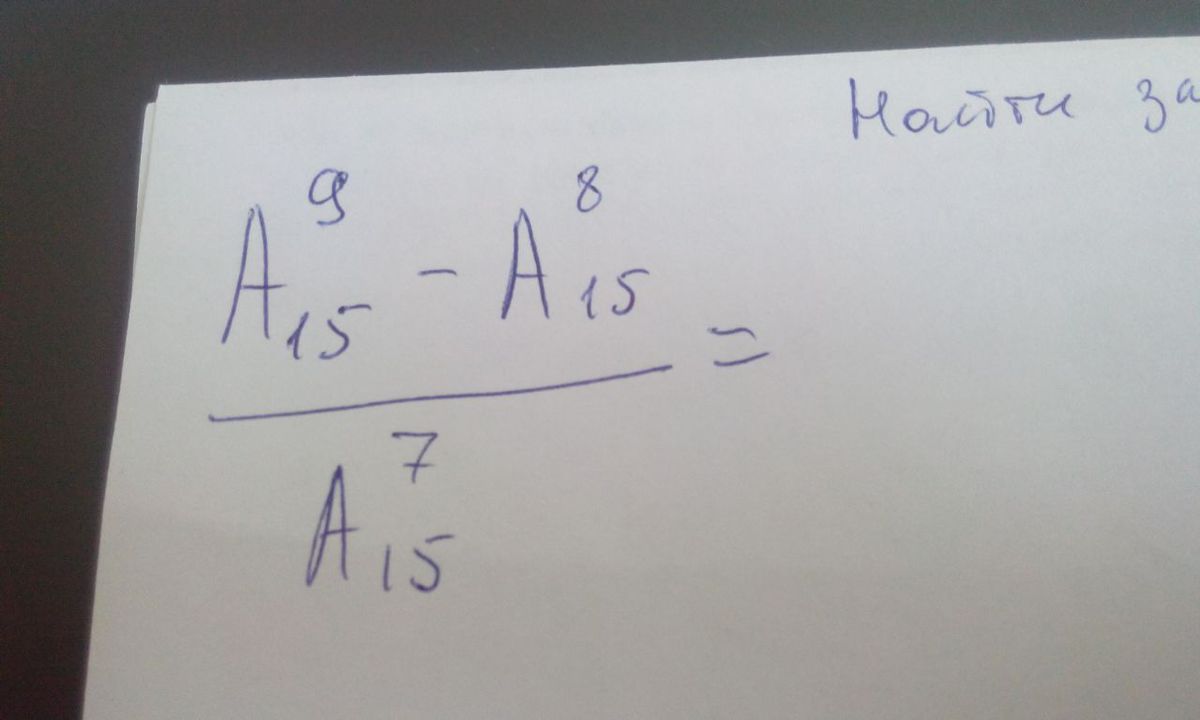 Найти
A₁₅⁹ - A₁₅⁸ =
A₁₅⁷